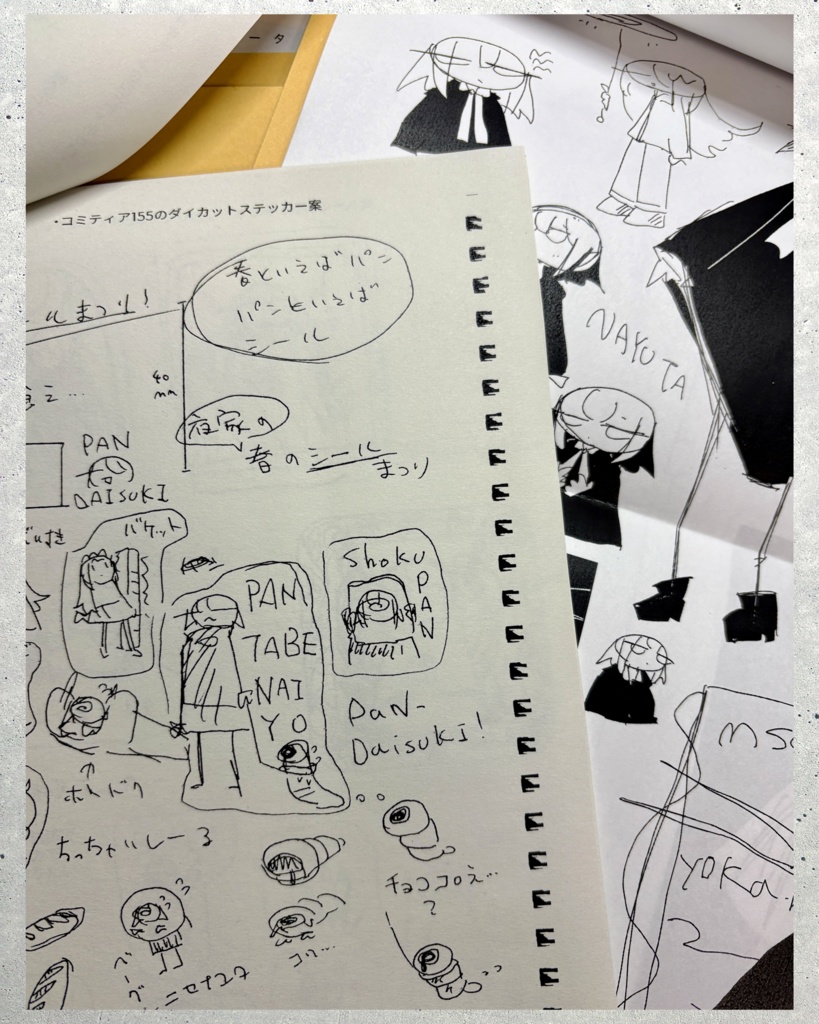 ータ
・コミティア155のダイカットステッカー案
ルまつり！
春といえばパン
パンといえば
シール
40
mm
夜家の
春のシール
まつり
PAN
DAISUKI
バケット
PAN
TABE
NAI
YO
Shoku
PAN
PAN-
DaisukI!
ホットドク
ちっちゃいしーる
チョココロネ…
?
コワ…
ニセナユタ
NAYUTA
YOKA